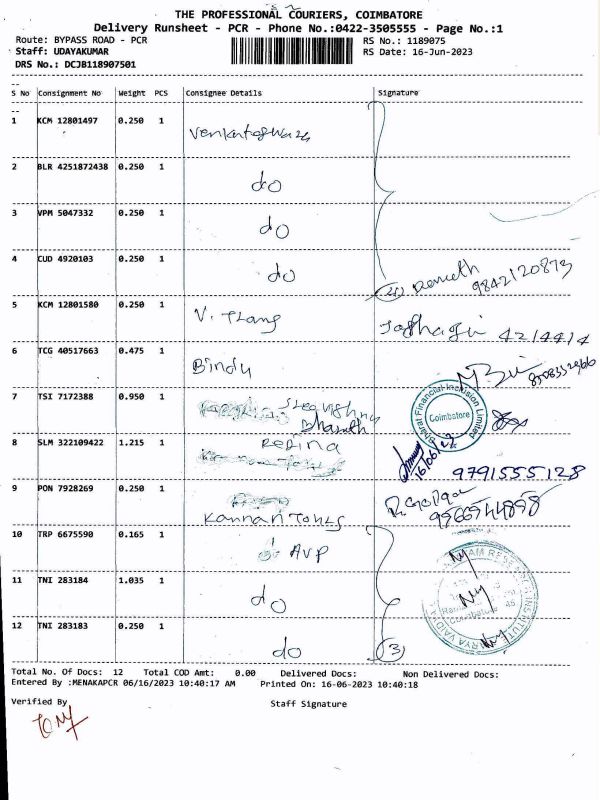 THE PROFESSIONAL COURIERS, COIMBATORE
Delivery Runsheet - PCR - Phone No.:0422-3505555 - Page No.:1
Route: BYPASS ROAD - PCR
RS No.: 1189075
Staff: UDAYAKUMAR
RS Date: 16-Jun-2023
DRS No.: DCJB118907501
S No Consignment No Weight PCS Consignee Details Signature
1 KCM 12801497 0.250 1
2 BLR 4251872438 0.250 1 do
3 VPM 5047332 0.250 1 do
4 CUD 4920103 0.250 1 do
9842120873
5 KCM 12801580 0.250 1 V.
4214414
6 TCG 40517663 0.475 1 Bindu
7 TSI 7172388 0.950 1
Bharat Financial Inclusion Limited
Coimbatore
8 SLM 322109422 1.215 1 REGINA
16/06/23
9791555128
9 PON 7928269 0.250 1 Kannan Tours
10 TRP 6675590 0.165 1 AVP
11 TNI 283184 1.035 1 do
12 TNI 283183 0.250 1 do
3
Total No. Of Docs: 12 Total COD Amt: 0.00 Delivered Docs: Non Delivered Docs:
Entered By :MENAKAPCR 06/16/2023 10:40:17 AM Printed On: 16-06-2023 10:40:18
Verified By
Staff Signature